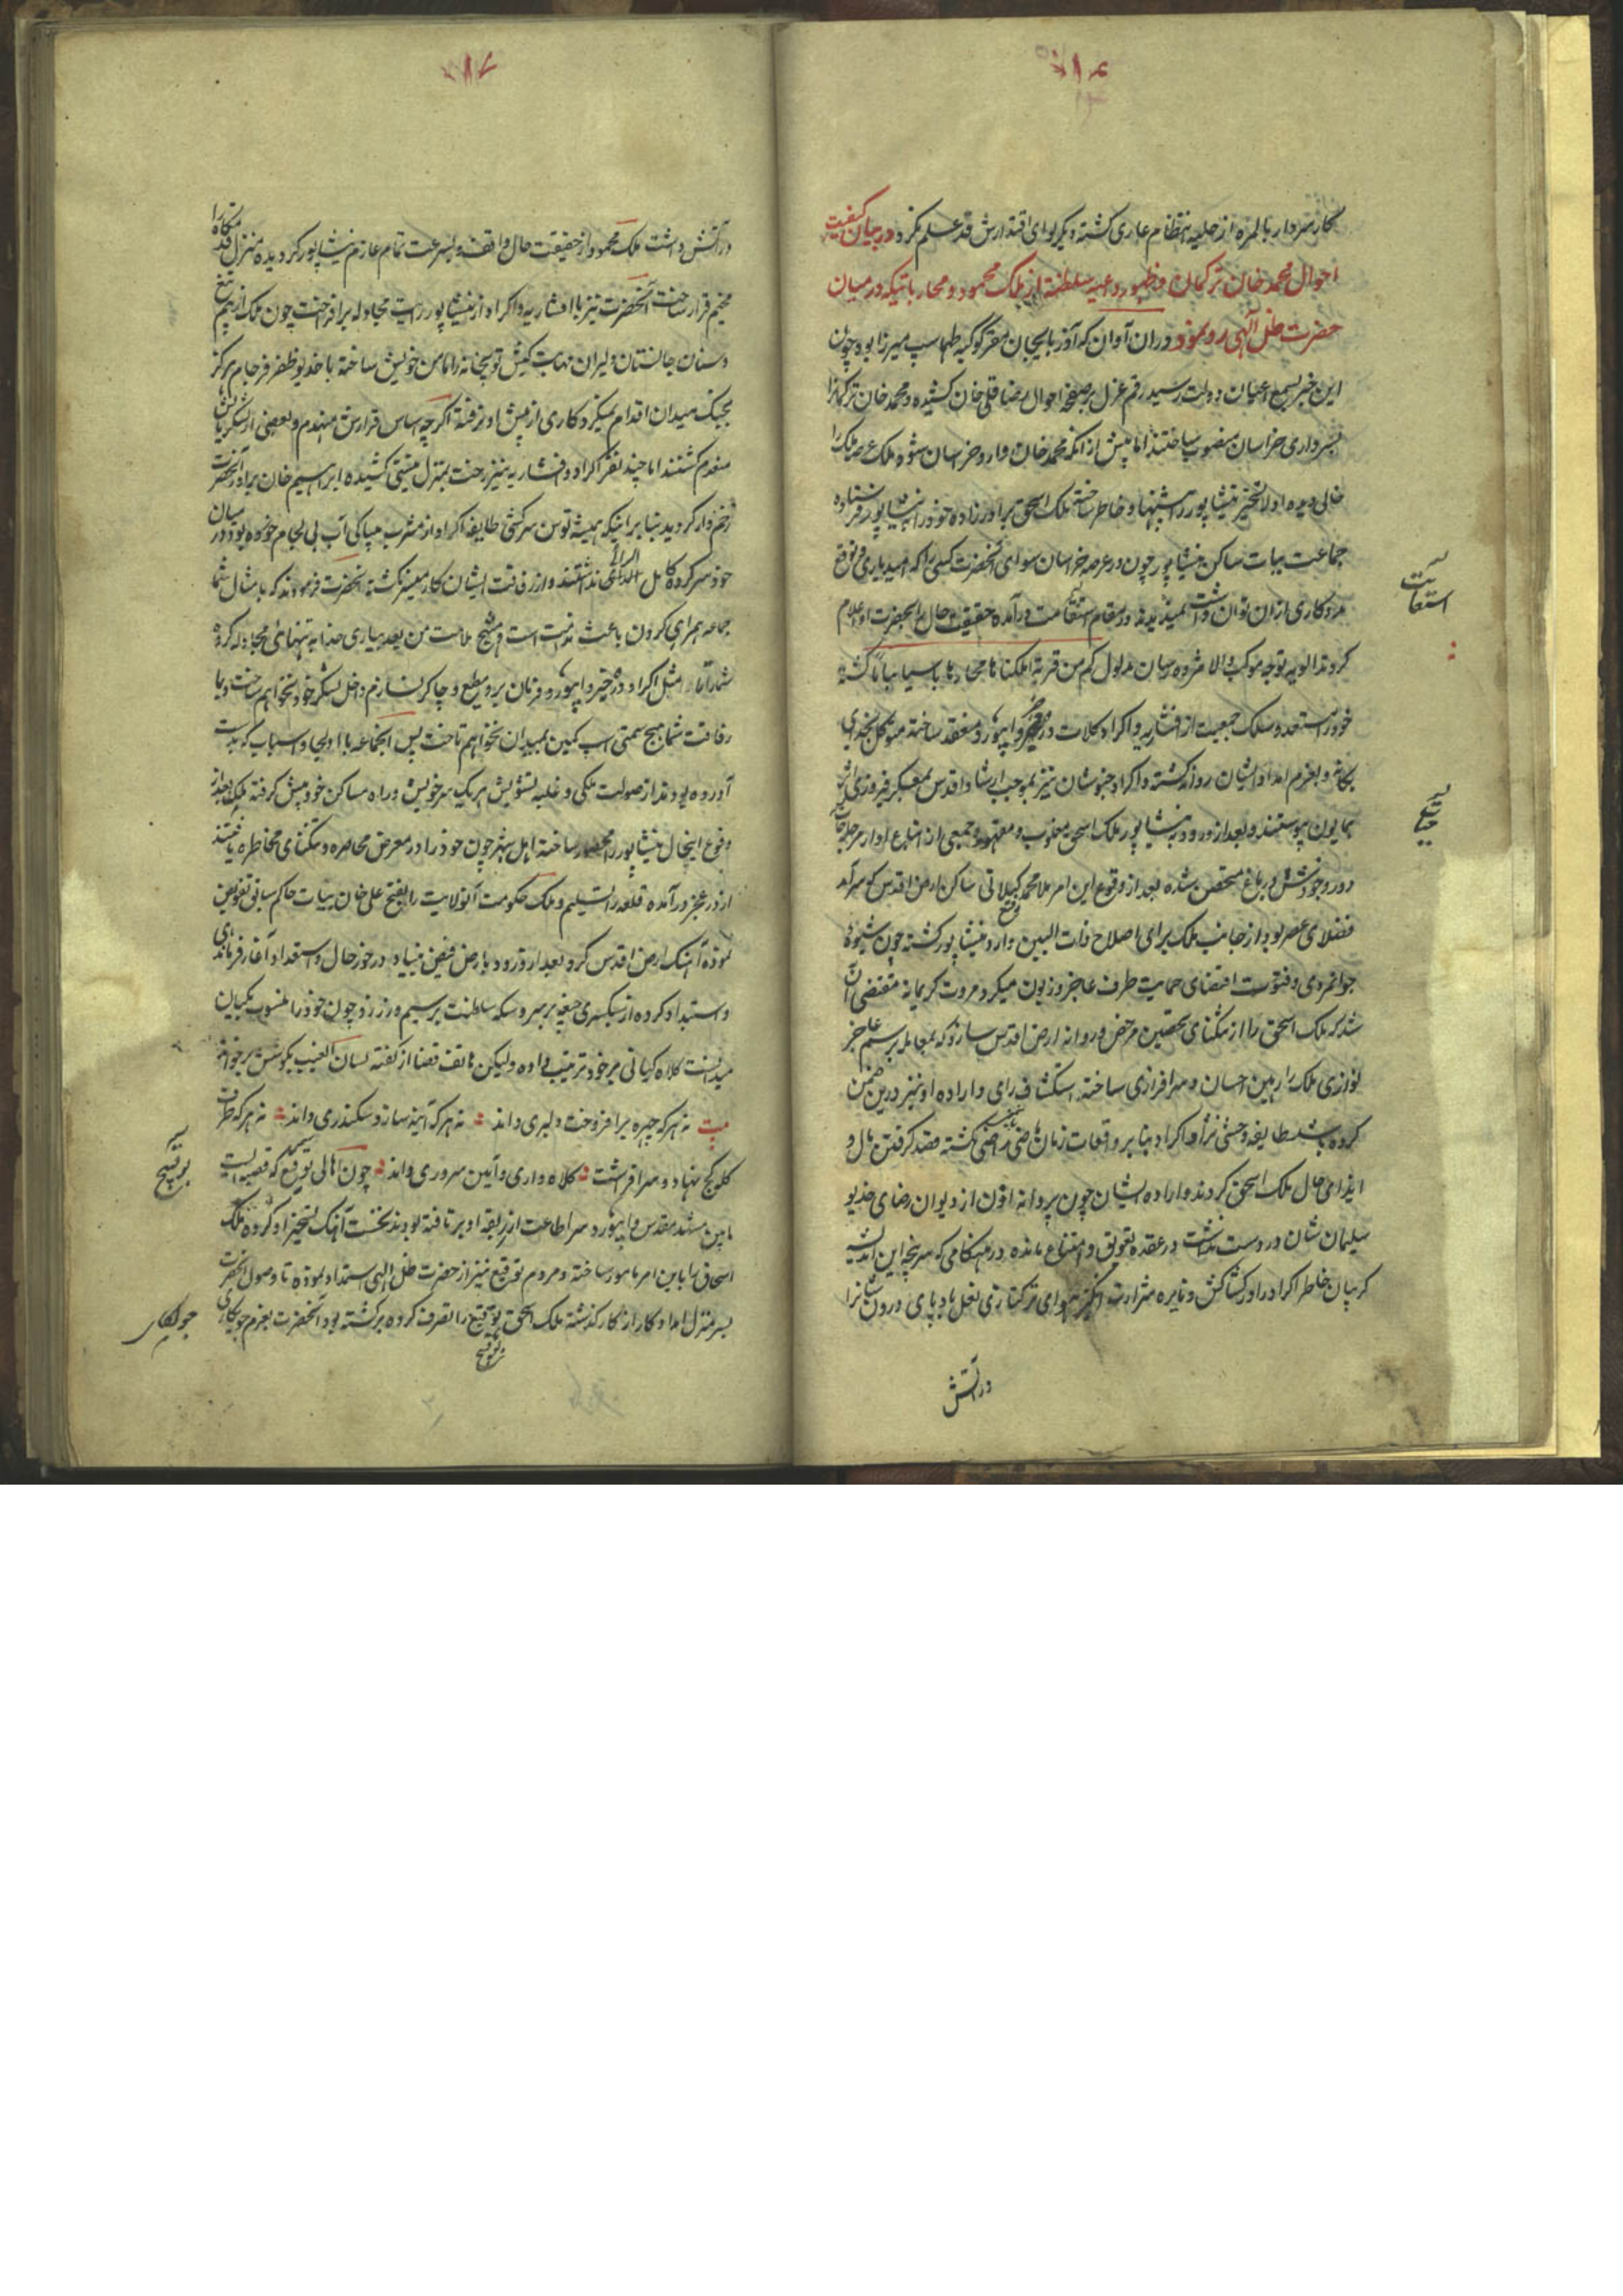 کار سردار بالمره از حلیه انتظام عاری گشته دیگر لوای اقتدارش قد علم نکرد در بیان کیفیت
احوال محمد خان ترکمان و ظهور داعیه سلطنة از ملک محمود و محارباتیکه در میان
حضرت ظل الهی رو نمود در ان آوان که آذربایجان مقر کوکبه طهماسب میرزا بود چون
این خبر بسمع اعیان دولت رسید رقم عزل بر صفحه احوال رضا قلی خان کشیده و محمد خان ترکمانرا
بسرداری خراسان منصوب ساختند اما پیش از انکه محمد خان وارد خراسان شود ملک عرصه ملک را
خالی دیده اولا تسخیر نیشاپور را پیشنهاد خاطر ساخته ملک اسحق برادرزاده خود را به نیشاپور فرستاده
جماعت بیات ساکن نیشاپور چون در عرصه خراسان سوای آنحضرت کسی را که امید یاری و توقع
مددکاری از ان توان داشت نمیدیدند در مقام استقامت درآمده حقیقت حال را بحضرت او اعلام
کردند الویه توجه موکب والا شروه میان مدلول کم من قریة اهلکناها فجاءها باسنا بیاتا گشته
خود مستعد و سلک جمعیت از افشاریه و اکراد کلات و دره جز و ابیورد منعقد ساخته متوکل بخدای
یکتا و بعزم امداد ایشان روانه گشته و اکراد خبوشان نیز بموجب ارشاد اقدس بمعسکر فیروزی اثر
همایون پیوستند و بعد از ورود به نیشاپور ملک اسحق مغلوب و مقهور و جمعی از اتباع او از مرحله حیات
دور و خودش در باغ متحصن شده بعد از وقوع این امر ملا محمد گیلانی ساکن ارض اقدس که سرآمد
فضلای عصر بود از جانب ملک برای اصلاح ذات البین وارد نیشاپور گشته چون شیوه
جوانمردی و فتوت اقتضای حمایت طرف عاجز و زبون میکرد مروت کریمانه مقتضی آن
شد که ملک اسحق را از تنگنای تحصین مرخص و روانه ارض اقدس سازد که بمعامله رسم عاجز
نوازی ملک را رهین احسان و سرافرازی ساخته استکشاف رای و اراده او نیز درین ضمن
کرده باشد طایفه وحشی نژاد اکراد بنا بر وقعات زمان ماضی راضی نگشته قصد گرفتن مال و
ایذای حال ملک اسحق کردند و اراده ایشان چون پروانه اذن از دیوان رضای خدیو
سلیمان شان در دست نداشت در عقده تعویق و امتناع مانده در هنگامی که سرپنجه این اندیشه
گریبان خاطر اکراد را در کشاکش و نایره شرارت انگیز هوای ترکتازی نعل بادپای درون شانرا
در آتش
استقامت
حیات
در آتش داشت ملک محمود از حقیقت حال واقف و بسرعت تمام عازم نیشاپور گردیده منزل قدمگاه را
مخیم قرار ساخت آنحضرت نیز با افشاریه و اکراد از نیشاپور رایت مجادله برافراخت چون ملک از بیم تیغ
دستان جانستان دلیران نهابت کیش توپخانه را مامن خویش ساخته با خدیو ظفر فرجام هرگز
بجنگ میدان اقدام نمیکرد کاری از پیش او نرفته اگرچه اساس قرارش منهدم و بعضی از لشکریانش
منعدم گشتند اما چند نفر اکراد و افشاریه نیز رخت بمنزل نیستی کشیده ابراهیم خان برادر آنحضرت
زخم دار گردید بنا بر اینکه همیشه توسن سرکشی طایفه اکراد از مشرب بیباکی آب بی لجام خورده بود در میان
خود سرکرده کامل الرائی نداشتند و از رفاقت ایشان کار میسر نگشته آنحضرت فرمودند که با مثال شما
جماعه همراهی کردن باعث ندامت است و منتج ملامت من بعد بیاری خدا به تنهائی مجادله کرده
شما را تا مثل اکراد دره جز و ابیورد فرمان بر و مطیع و چاکر نسازم داخل لشکر خود نخواهم ساخت و با
رفاقت شما بهیچ سمتی اسب کمین بمیدان نخواهم تاخت پس آنجماعه با اولجا و اسبابی که بدست
آورده بودند از صولت ملکی و غلبه تشویش هر یک سر خویش و راه مساکن خود پیش گرفته ملک بعد از
وقوع اینحال نیشاپور را محصور ساخته اهل شهر چون خود را در معرض محاصره و تنگنای مخاطره یافتند
از در عجز درآمده قلعه را تسلیم و ملک حکومت آنولایت را بفتح علی خان بیات حاکم سابق تفویض
نموده آهنگ ارض اقدس کرد بعد از ورود بارض فیض بنیاد در خور حال و استعداد آغاز فرماندهی
و استبداد کرده از سبکسری جیغه بر سر و سکه سلطنت بر سیم و زر زد چون خود را منسوب بکیان
میدانست کلاه کیانی بر خود ترتیب داده و لیکن هاتف قضا از گفته لسان الغیب بگوشش برخواند
بیت نه هر که چهره برافروخت دلبری داند نه هر که آینه سازد سکندری داند نه هر که طرف
کله کج نهاد و سر افراشت کلاه داری و آیین سروری داند چون اهالی توقیع که قصبه ایست
مابین مشهد مقدس و ابیورد سر اطاعت از ربقه او برتافته بودند نخست آهنگ تسخیر او کرده ملک
اسحاق را باین امر مامور ساخته و مردم توقیع نیز از حضرت ظل الهی استمداد نموده تا وصول آنحضرت
بسر منزل امداد کار از کار گذشته ملک اسحق توقیع را تصرف کرده برگشته بود آنحضرت بعزم چپکای
جولکای